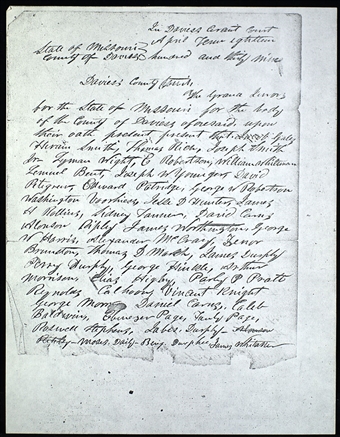 In Daviess Circuit Court
April Term eighteen
State of Missouri
County of Daviess hundred and thirty nine
Daviess County
The Grand Jurors
for the State of Missouri for the body
of the County of Daviess aforesaid upon
their oath present present that Jacob Gates
Hiram Smith, Thomas Hicks, Joseph Smith
Jr Lyman Wight, E Robertson, William Whitman
Lemuel Bent, Joseph W Younger, David
Edward Patridge, George W Robertson
Washington Voorhees, Jesse D Hunter, James
H Rollins, Sidney Tanner, David Carns
Alonson Ripley James Worthington, George
W Harris, Alexander McCraig, Tenor
Brunston, Thomas D Marsh, James Durphy
Perry Durphy, George Hinkle, Arthur
Morrison, Elias Higby, Parly P Pratt
Reynolds Cathoon, Vinant Knight
George Daniel Carns, Caleb
Baldwin, Ebenezer Page, Page,
Roswell Stephens, Labes Durphy Alonson
Moses Daily Benj. Durphee James Whitaker